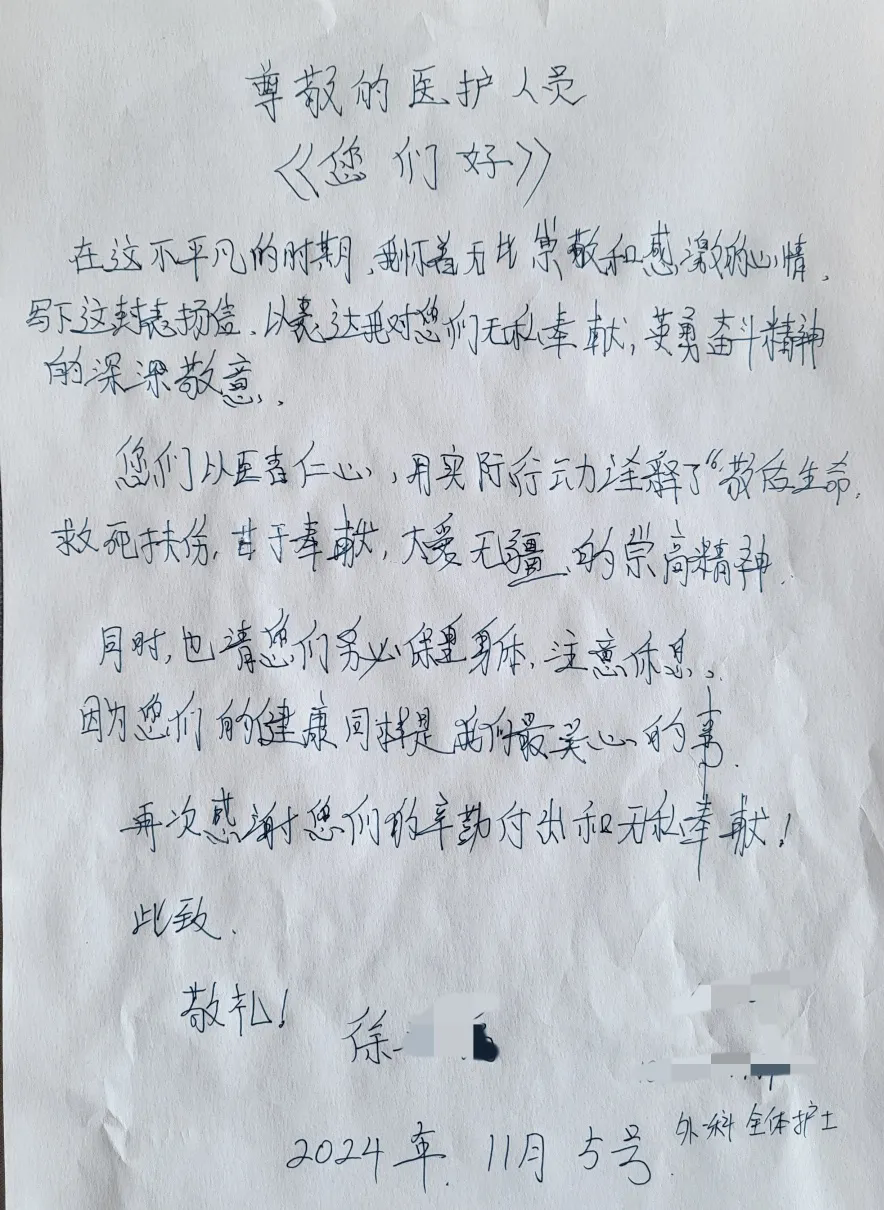 尊敬的医护人员
《您们好》
在这不平凡的时期,我怀着无比崇敬和感激的心情,
写下这封表扬信、以表达我对您们无私奉献,英勇奋斗精神
的深深敬意.
您们以医者仁心,用实际行动诠释了“敬佑生命,
救死扶伤,甘于奉献,大爱无疆的崇高精神.
同时,也请您们务必保重身体,注意休息.
因为您们的健康同样是我们最关心的事.
再次感谢您们的辛勤付出和无私奉献!
此致.
敬礼!
徐
外科全体护士
2024年.11月5号.